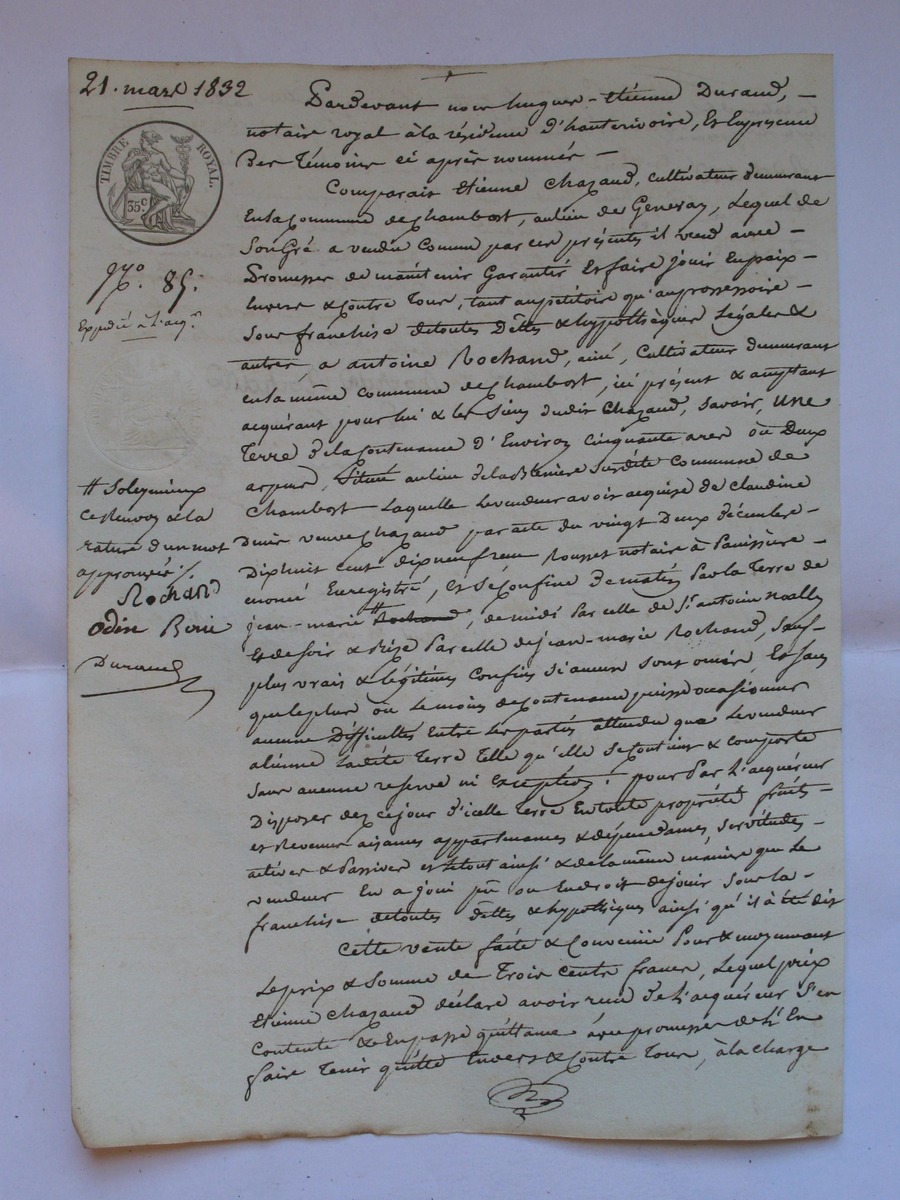 21. mars 1832
TIMBRE ROYAL.
35 c
N.o 85.
Expédié à l'acq.r
# Soleymieux
ce renvoy & la
rature d'un mot
approuvée ./.
Rochand
Odin
Durand
Pardevant nous hugues-Etiénne Durand, –
notaire royal à la résidence d'hauterivoire, Et En présence
Des témoins ci après nommés –
Comparait Etienne Chazaud, cultivateur demeurant
En la Commune de Chambost, au lieu de Genevay, Lequel de
Son Gré a vendu Comme par ces présentes il vend avec –
Promesses de maintenir Garantir Et faire Jouir En paix –
Envers & Contre Tous, tant au pétitoire qu'au possessoire –
Sous franchise de toutes Dêttes & hypothèques Légales &
autres, a antoine Rochand, ainé, Cultivateur demeurant
en la même commune de Chambost, ici présent & acceptant
acquérant pour lui & les Siens dudit Chazaud, savoir, une
Terre de la Contenance d'Environ Cinquante ares ou Deux
arpens, Située au lieu de susdite Commune de
Chambost Laquelle Le vendeur avoit acquise de claudine
Denis veuve Chazaud par acte du vingt Deux décembre –
Dix huit cent dix neuf reçu Rousset notaire à Panissière –
énoncé Enregistré, Et Se Confine De matin Par la Terre de
jean-marie # Rochand, de midi Par celle de St antoine Noally
Et de Soir & Bize Par celle de jean-marie Rochand, Sauf –
plus vrais & légitimes Confins Si aucuns sont omis, Et Sans
que le plus ou Le moins de Contenance puisse occasionner
aucune Difficultés Entre Les parties attendu que Le vendeur
aliénne Ladite Terre Telle qu'elle Se Contient & Comporte
Sans aucune réserve ni Exception: pour Par L'acquéreur
Disposer dez ce jour d'icelle Terre En toute propriété fruits –
et Revenus aisances appartenances & dépendances, Servitudes –
actives & Passives et le tout ainsi & de la même manière que Le
vendeur En a joui pu ou En droit de jouir Sous la –
franchise de toutes dêttes & hypothèques ainsi qu'il a été dit
Cette vente faite & Convenüe Pour & moyennant
Le prix & Somme de Trois Cents francs, Lequel prix
Etienne Chazaud déclare avoir reçu De L'acquéreur S'en
Contente & En passe quittance avec promesse de L'En
faire Tenir quitte Envers & Contre Tous, à la charge